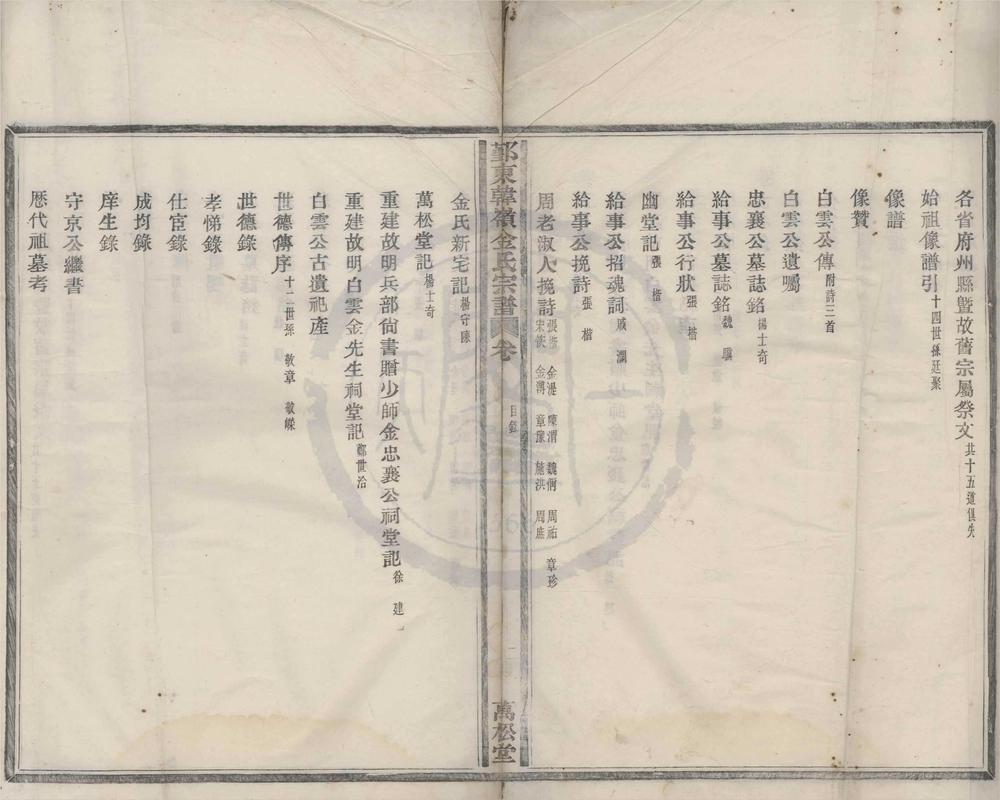 各省府州縣暨故舊宗屬祭文共十五道俱失
始祖像譜引十四世孫廷聚
像譜
像贊
白雲公傳附詩三首
白雲公遺囑
忠襄公墓誌銘楊士奇
給事公墓誌銘魏驥
給事公行狀張楷
幽堂記張楷
給事公招魂詞戚瀾
給事公挽詩張楷
周老淑人挽詩張楷 金湜 陳渭 魏偁 周祐 章珍
宋恢 金溥 章豫 施洪 周庶
鄞東韓嶺金氏宗譜 卷 目錄 一 萬松堂
金氏新宅記楊守陳
萬松堂記楊士奇
重建故明兵部尙書贈少師金忠襄公祠堂記徐建
重建故明白雲金先生祠堂記鄭世治
白雲公古遺祀產
世德傳序十二世孫 敎章 敎嶸
世德錄
孝悌錄
仕宦錄
成均錄
庠生錄
守京公繼書
歷代祖墓考